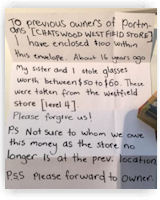 To previous owners of Portm-
ans [CHATSWOOD WESTFIELD STORE]
I have enclosed $100 within
this envelope. About 16 years ago
My sister and I stole glasses
worth between $50 to $60. These
were taken from the Westfield
store [level 4]
Please forgive us!
PS Not sure to whom we owe
this money as the store no
longer is at the prev. location
P.S.S Please forward to owner.